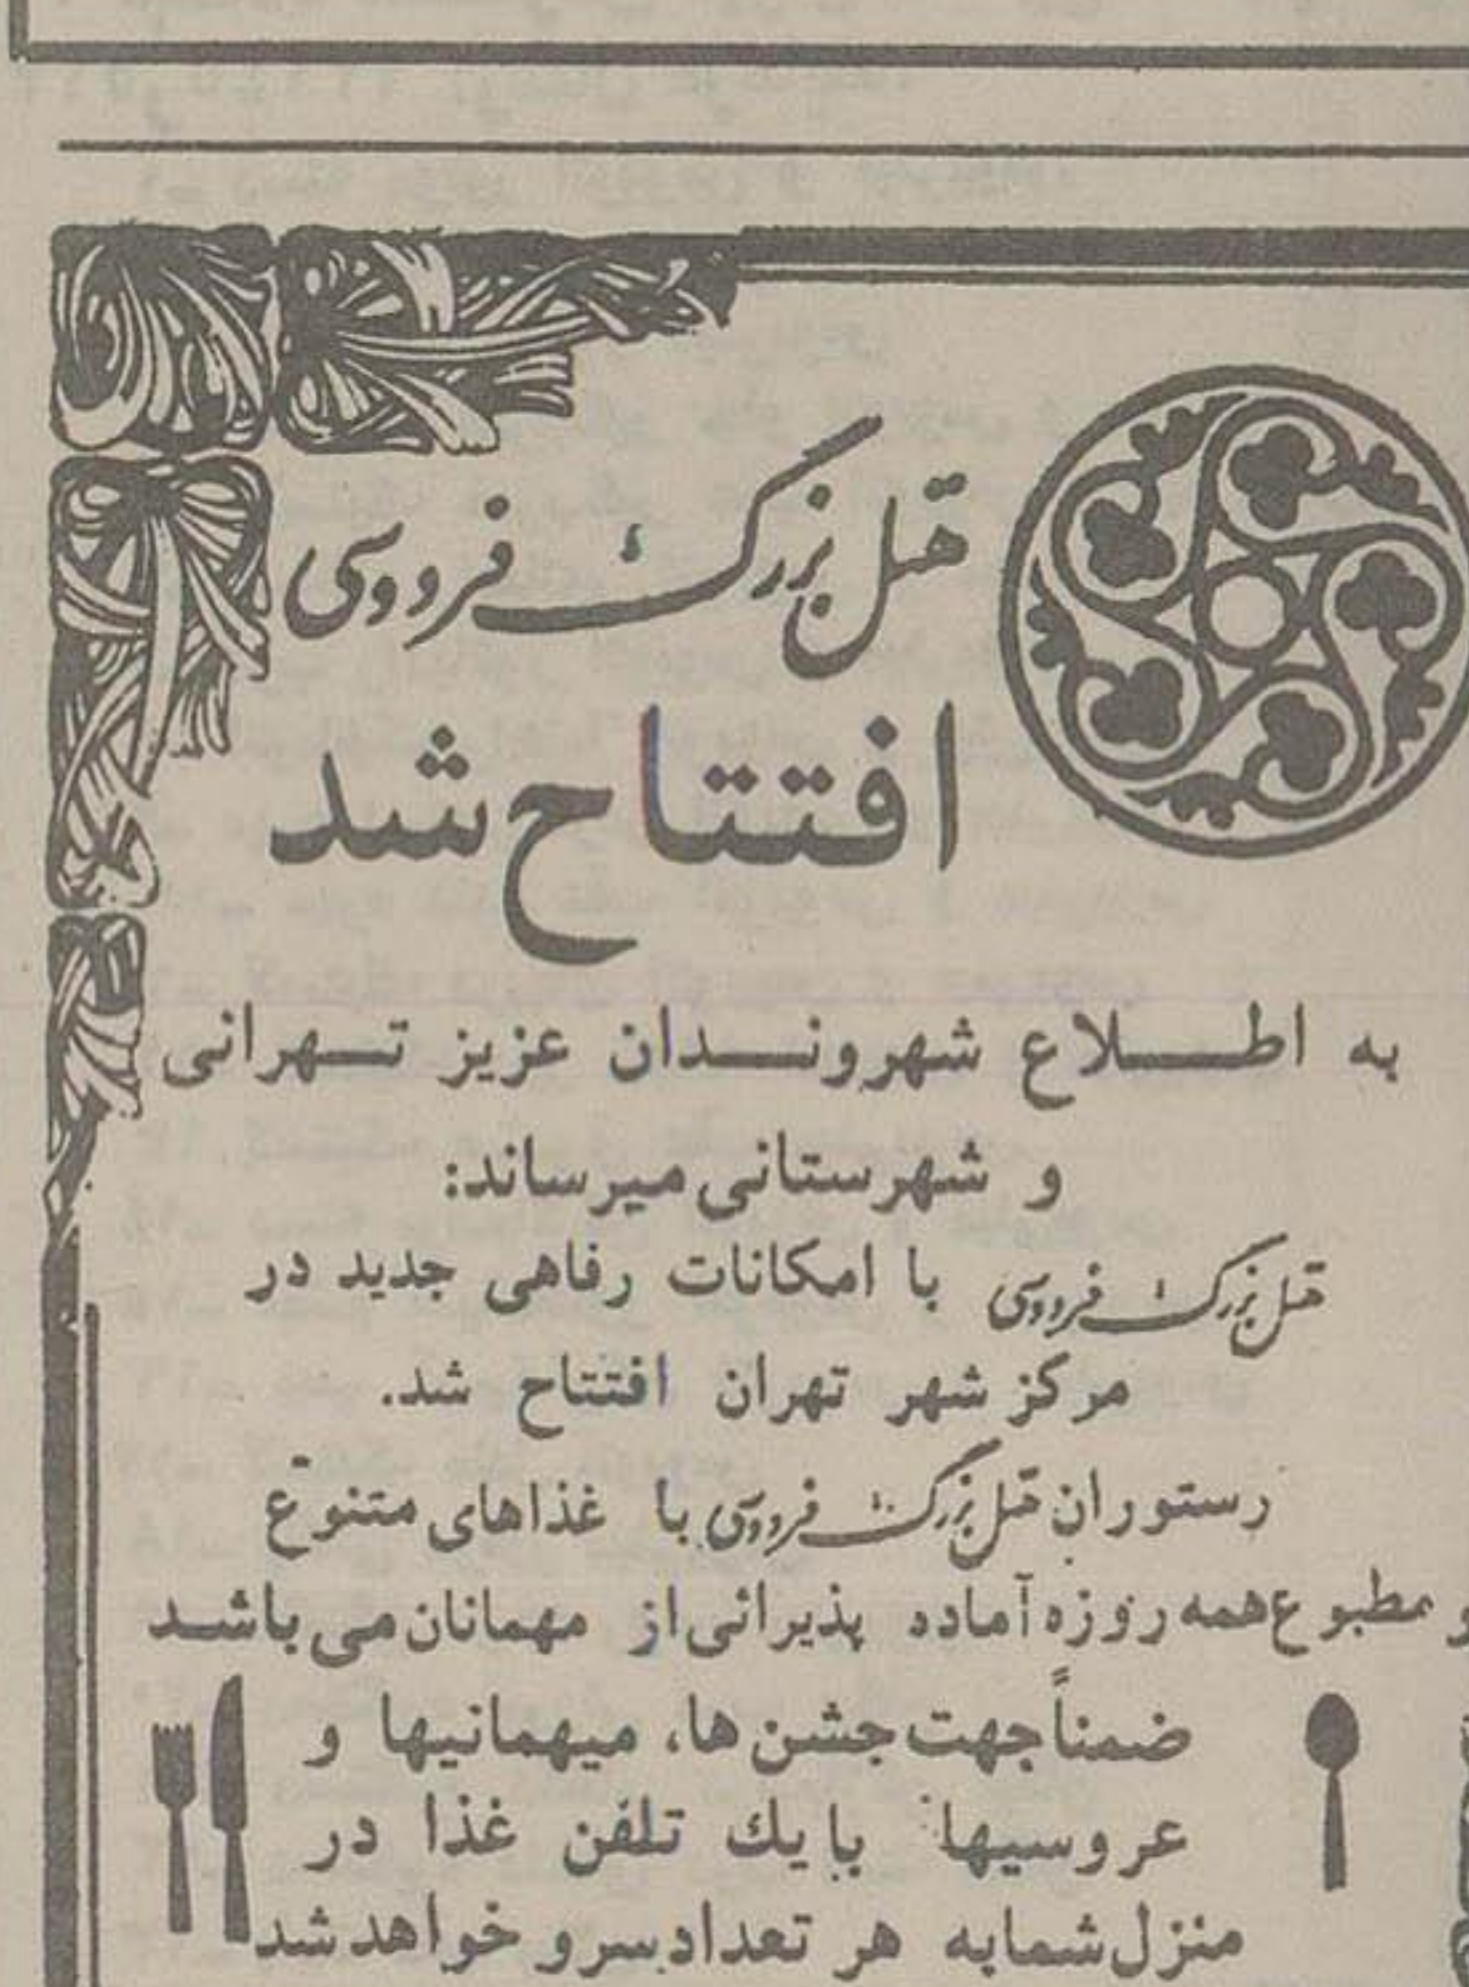 هتل بزرگ فردوسی
افتتاح شد
به اطلاع شهروندان عزیز تهرانی
و شهرستانی میرساند:
هتل بزرگ فردوسی با امکانات رفاهی جدید در
مرکز شهر تهران افتتاح شد.
رستوران هتل بزرگ فردوسی با غذاهای متنوّع
و مطبوع همه روزه آماده پذیرائی از مهمانان می باشد
ضمناً جهت جشن ها، میهمانیها و
عروسیها با یك تلفن غذا در
منزل شما به هر تعداد سرو خواهد شد